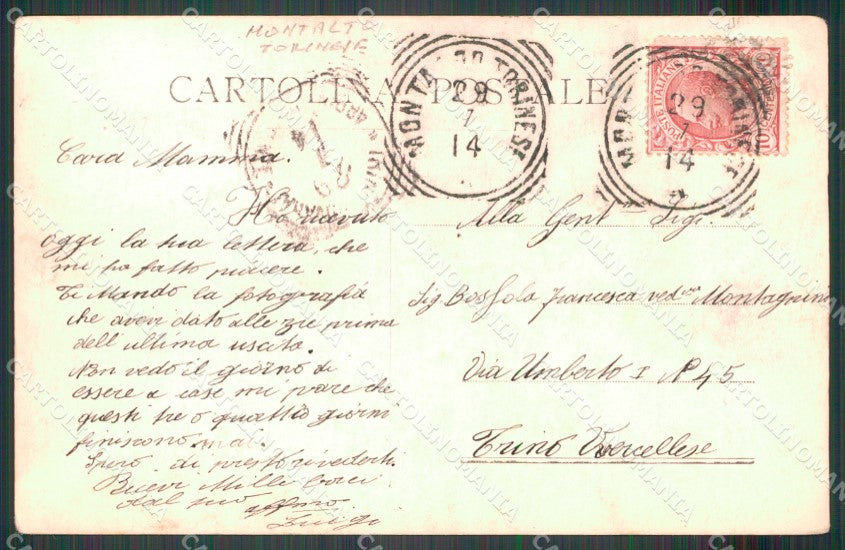 MONTALTO
TORINESE
CARTOLINA POSTALE
MONTALDO TORINESE
29
1
14
29
1
14
POSTE ITALIANE
Cara Mamma.
Ho ricevuto
oggi la tua lettera, che
mi ha fatto piacere.
Ti Mando la fotografia
che avevi dato alle zie prima
dell'ultima uscita.
Non vedo il giorno di
essere a casa mi pare che
questi tre o quattro giorni
finiscono mai.
Spero di presto rivederti.
Ricevi Mille baci
dal tuo affmo
Luigi
Alla Gent Sig.
Sig Bossola Francesca ved Montagnini
Via Umberto I N 45
Trino Vercellese
CARTOLINOMANIA